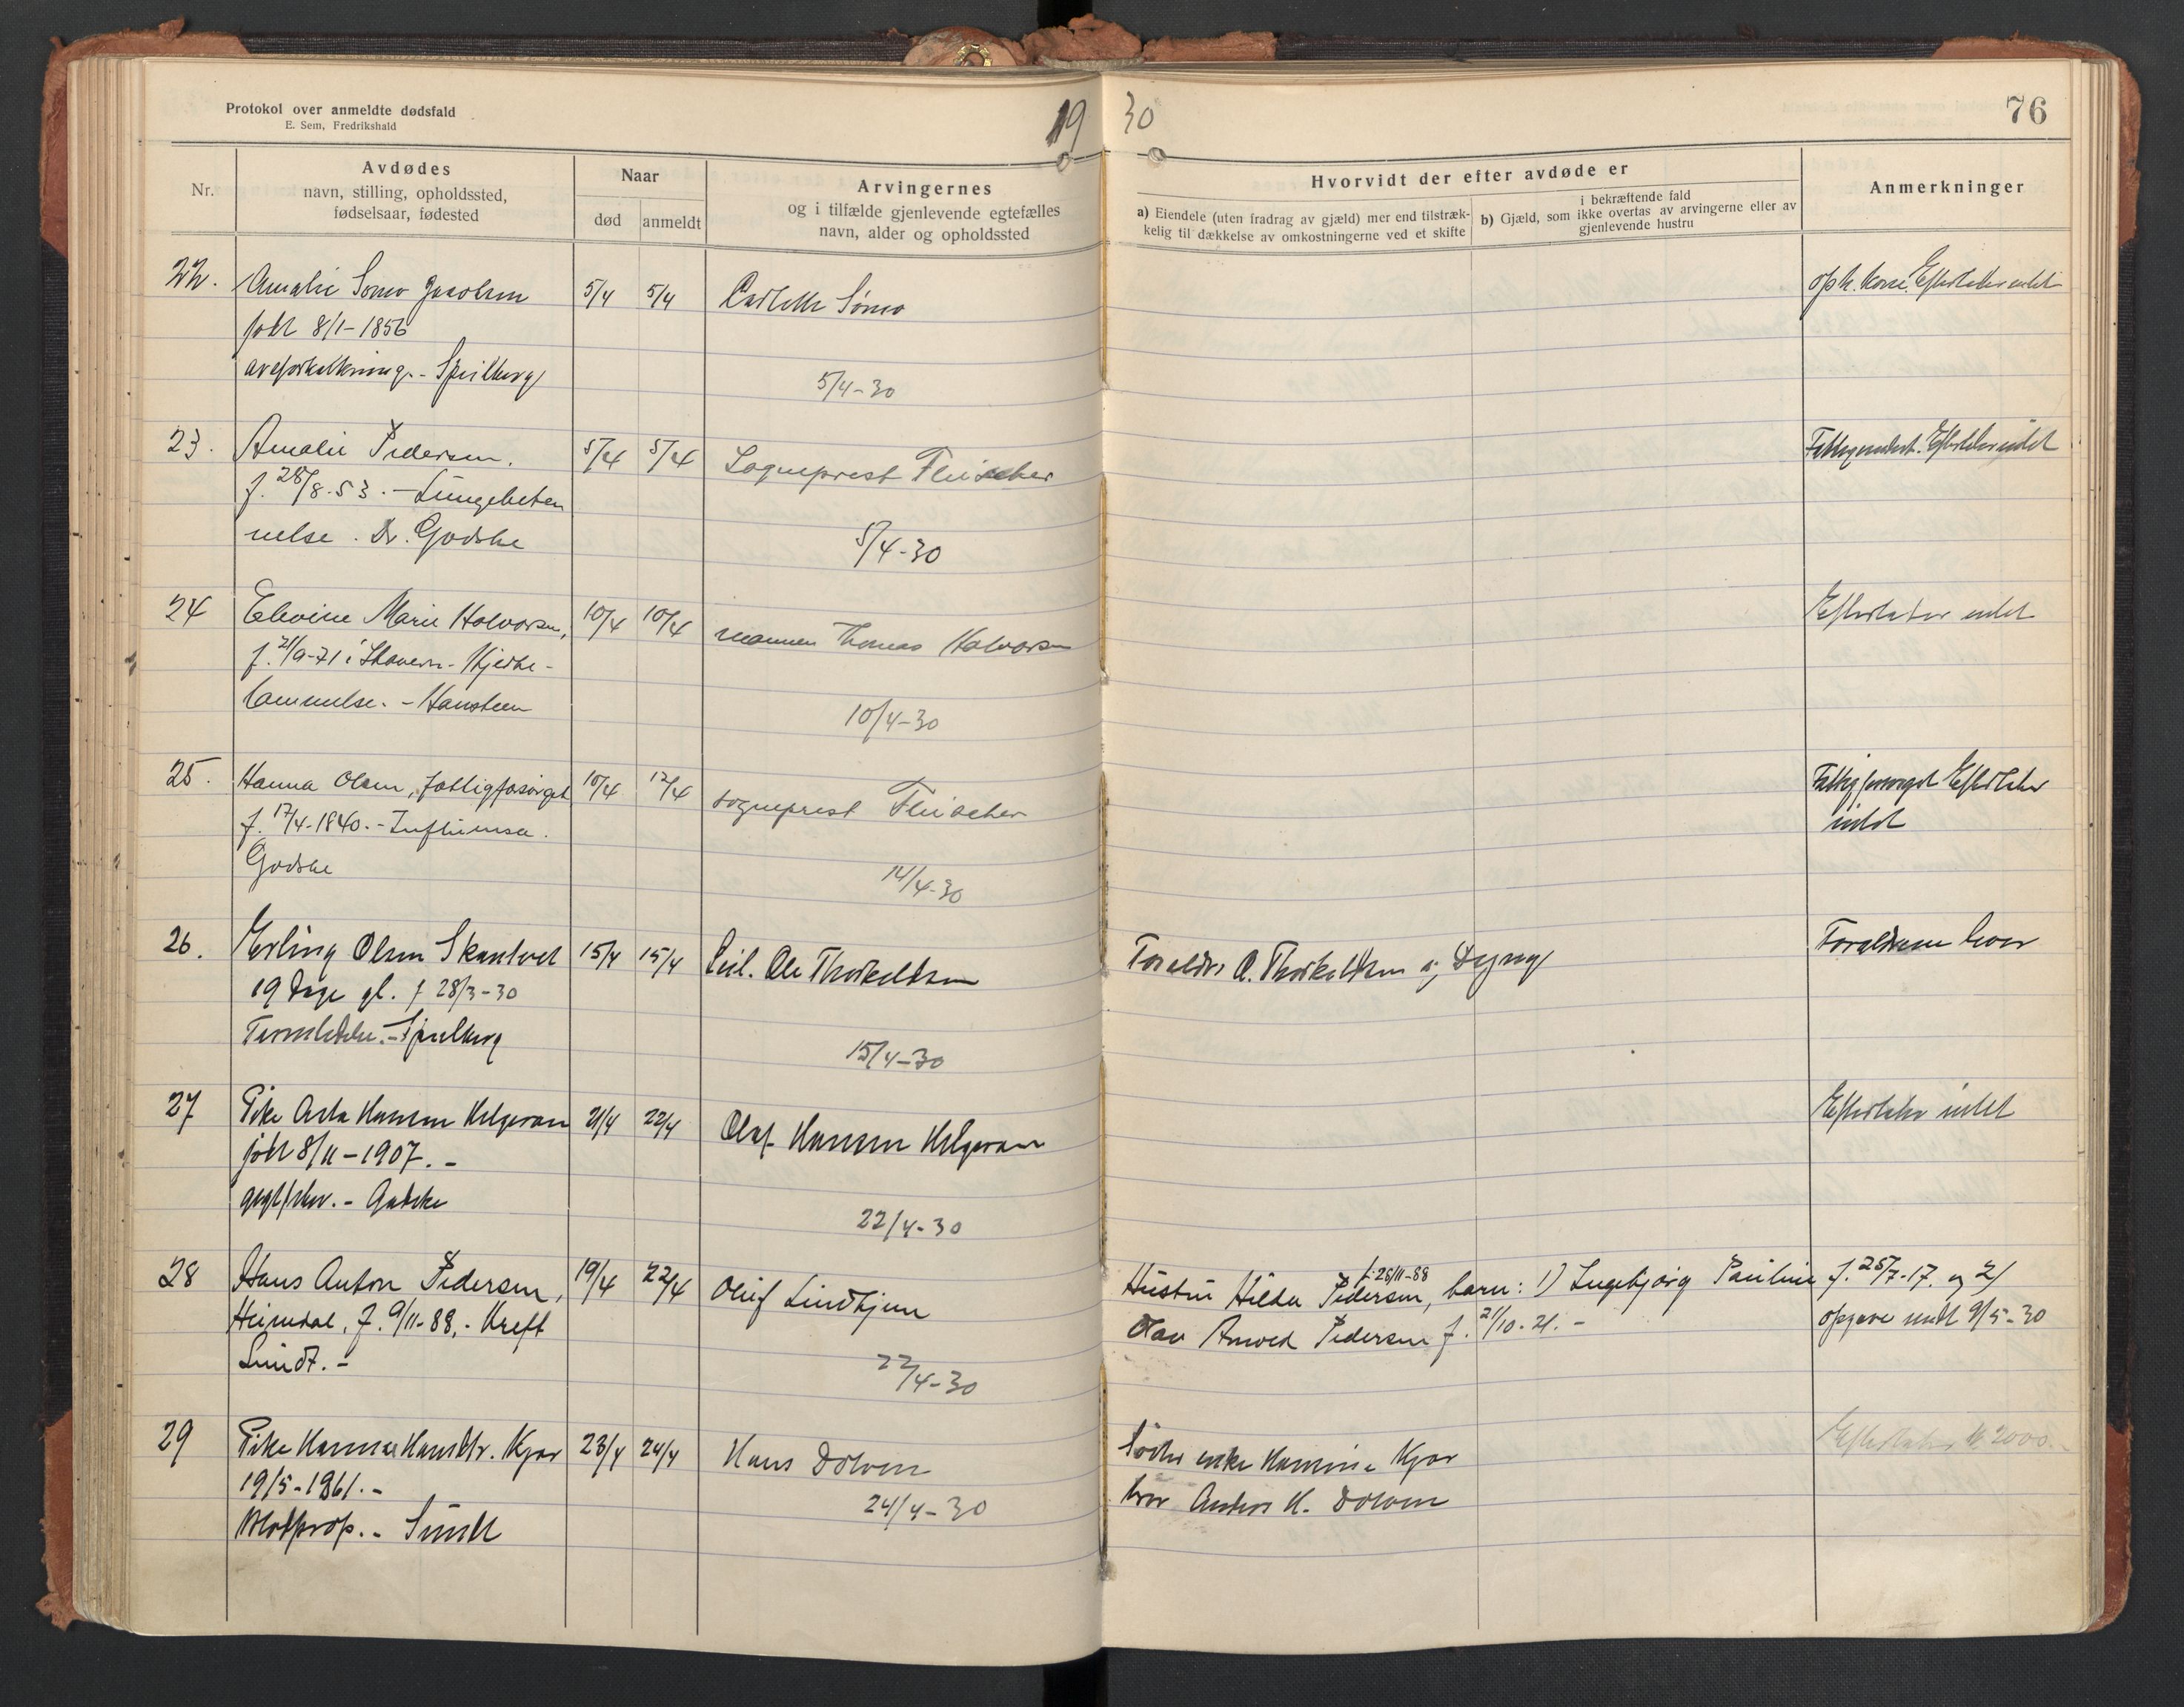 Protokol over anmeldte dødsfald
E. Sem, Fredrikshald
19 30
76
Nr.
Avdødes
navn, stilling, opholdssted,
fødselsaar, fødested
Naar
død anmeldt
Arvingernes
og i tilfælde gjenlevende egtefælles
navn, alder og opholdssted
Hvorvidt der efter avdøde er
a) Eiendele (uten fradrag av gjæld) mer end tilstræk-
kelig til dækkelse av omkostningerne ved et skifte
i bekræftende fald
b) Gjæld, som ikke overtas av arvingerne eller av
gjenlevende hustru
Anmerkninger
22. Amalie Jacobsen 5/4 5/4 Efterlater intet
født 8/1-1856
areforkalkning.- Speilberg
5/4-30
23. Amalie Pedersen. 5/4 5/4 Sogneprest Fleischer Efterlater intet
f. 28/8.53. - Lungebeten
nelse. Dr. Godske
5/4-30
24 Elevine Marie Halvorsen, 10/4 10/4 mannen Thomas Halvorsen Efterlater intet
f. 21/9-71 i Stavern - Hjerte-
lammelse. - Hansteen
10/4-30
25. Hanna Olsen, fattigforsørget 10/4 12/4 sogneprest Fleischer Fattigforsørget Efterlater
intet
f. 17/4-1840. - Influensa.
Godske
14/4-30
26. Erling Olsen Skantvet 15/4 15/4 Ole Thorkeldsen Foreldre O. Thorkeldsen Foreldrene lever
19 Dage gl. f 28/3-30
Speilberg
15/4-30
27 Pike Asta Hansen Helgeroa 21/4 22/4 Olaf Hansen Helgeroa Efterlater intet
født 8/11-1907. -
Godske
22/4-30
28 Hans Anton Pedersen, 19/4 22/4 Oluf Lindhjem Hustru Hilda Pedersen, f. 26/11-88 barn: 1) Ingebjørg Pauline f. 25/7-17. og 2)
Heimdal, f. 9/11-88,- Kreft Olav Pedersen f. 21/10-21. - opgave 9/5-30
Sundt. -
22/4-30
29 Pike Hansdtr. Kjær 23/4 24/4 Hans Dolven enke Kjær Efterlater kr 2000.-
19/5-1861. - bror Anders H. Dolven
24/4-30
Sundt